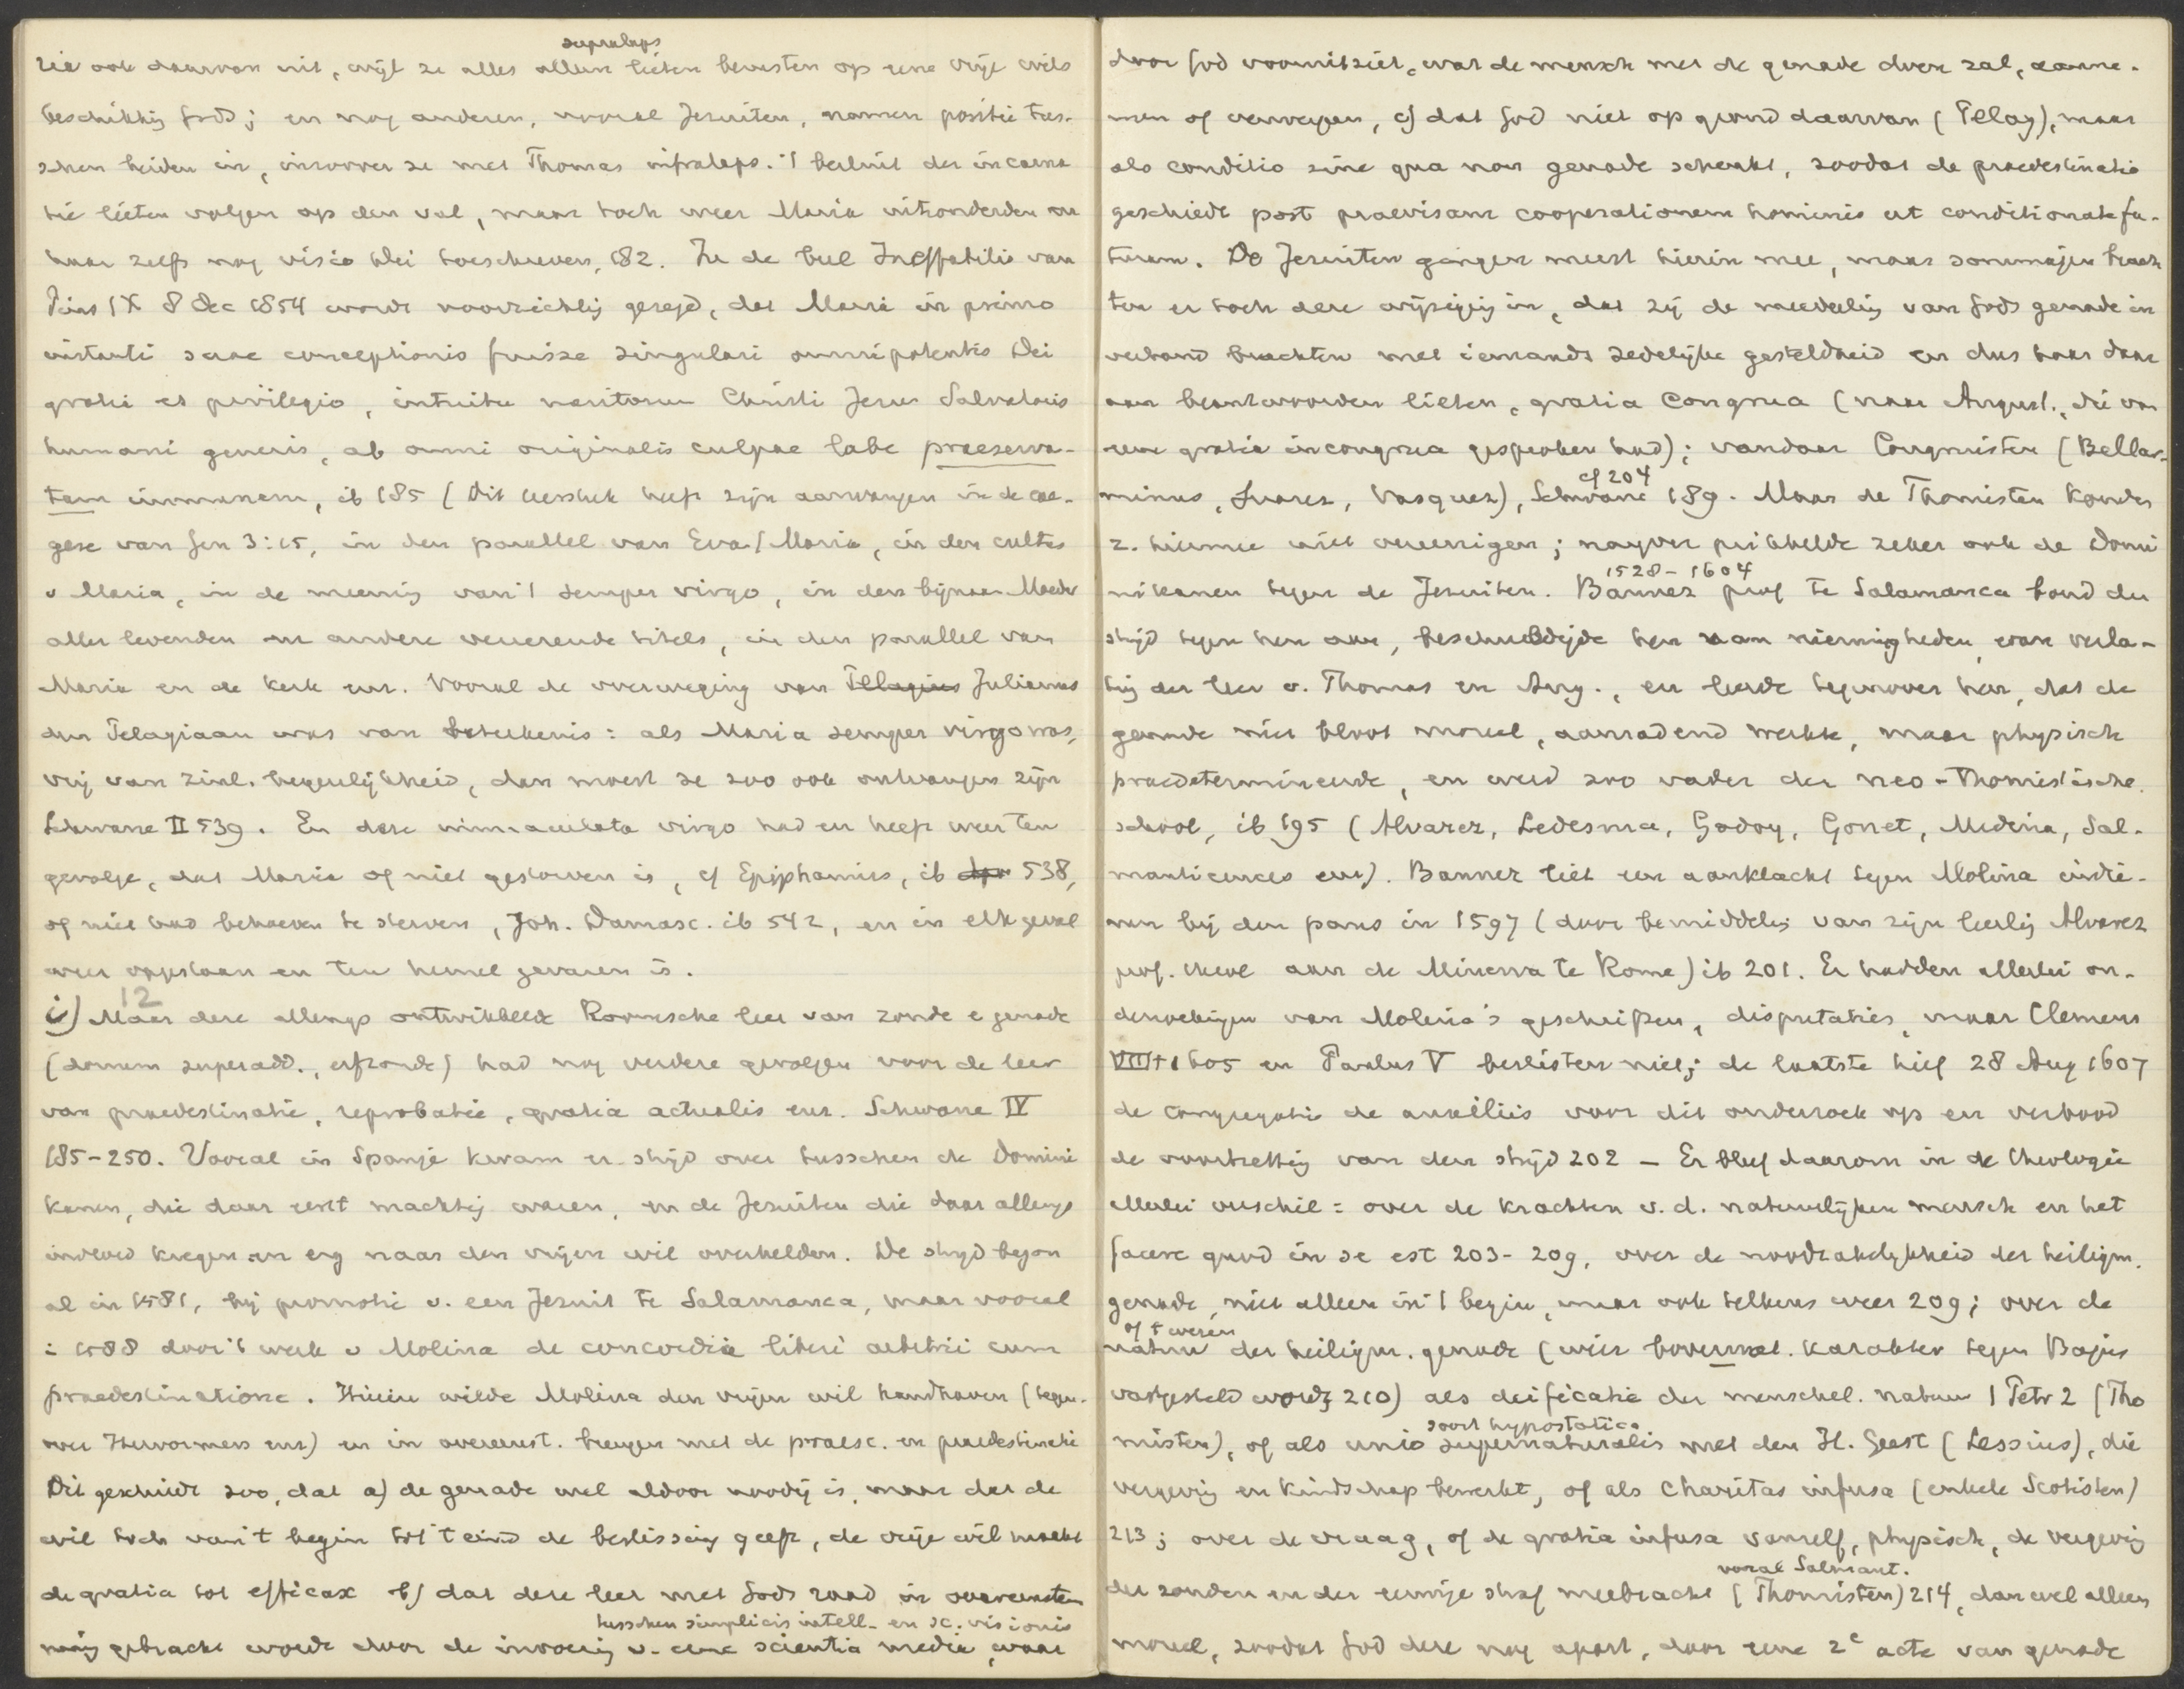 supralaps
zie ook daarvan uit, wijl ze alles alleen lieten berusten op eene vrije wils
beschikkig Gods; en nog anderen, vooral Jezuiten, namen positie tus-
schen beiden in, inzoover ze met Thomas infralaps. 't besluit der incarna
tie lieten volgen op den val, maar toch weer Maria uitzonderden en
haar zelfs nog visio Dei toeschreven, 182. In de bul Ineffabilis van
Pius IX 8 Dec 1854 wordt voorzichtig gezegd, dat Maria in primo
instanti suae conceptionis fuisse singulari omnipotentis Dei
gratia et privilegio, intuitu meritorum Christi Jesu Salvatoris
humani generis, ab omni originalis culpae labe praeserva-
tam immunem, ib 185 (Dit leerstuk heeft zijn aanvangen in de exe-
gese van Gen 3:15, in den parallel van Eva/Maria, in den cultus
v Maria, in de meening van 't semper virgo, in den bijnaam Moeder
aller levenden en andere vereerende titels, in den parallel van
Maria en de kerk enz. Vooral de overweging van Pelagius Julianus
den Pelagiaan was van beteekenis: als Maria semper virgo was,
vrij van zinl. begeerlijkheid, dan moest ze zoo ook ontvangen zijn
Schwane II 539. En deze immaculata virgo had en heeft weer ten
gevolge, dat Maria of niet gestorven is, cf Epiphanius, ib 538,
of niet had behoeven te sterven, Joh. Damasc. ib 542, en in elk geval
weer opgestaan en ten hemel gevaren is.
12
i) Maar deze allengs ontwikkelde Roomsche leer van zonde e genade
(donum superadd., erfzonde) had nog verdere gevolgen voor de leer
van praedestinatie, reprobatie, gratia actualis enz. Schwane IV
185-250. Vooral in Spanje kwam er strijd over tusschen de Domini
kanen, die daar eerst machtig waren, en de Jezuiten die daar allengs
invloed kregen en erg naar den vrijen wil overhelden. De strijd begon
al in 1581, bij promotie v. een Jezuit te Salamanca, maar vooral
in 1588 door 't werk v Molina de concordia liberi arbitrii cum
praedestinatione. Hierin wilde Molina den vrijen wil handhaven (tegen-
over Hervormers enz) en in overeenst. brengen met de praesc. en praedestinatie
Dit geschiedt zoo, dat a) de genade wel aldoor noodig is, maar dat de
wil toch van 't begin tot 't eind de beslissing geeft, de vrije wil maakt
de gratia tot efficax b) dat deze leer met Gods raad in overeenstem
tusschen simplicis intell. en sc. visionis
ming gebracht wordt door de invoering v. eene scientia media, waar
door God vooruitziet, wat de mensch met de genade doen zal, aanne-
men of verwerpen, c) dat God niet op grond daarvan (Pelag), maar
als conditio sine qua non genade schenkt, zoodat de praedestinatie
geschiedt post praevisam cooperationem hominis ut conditionate fu-
turam. De Jezuiten gingen meest hierin mee, maar sommigen brach
ten er toch deze wijziging in, dat zij de meedeeling van Gods genade in
verband brachten met iemands zedelijke gesteldheid en dus haar daar
aan beantwoorden lieten, gratia congrua (naar August., die van
eene gratia incongrua gesproken had); vandaar Congruisten (Bellar-
cf 204
minus, Suarez, Vasquez), Schwane 189. Maar de Thomisten konden
z. hiermee niet vereenigen; naijver prikkelde zeker ook de Domi
1528-1604
nikanen tegen de Jezuiten. Bannez prof te Salamanca bond den
strijd tegen hen aan, beschuldigde hen van nieuwigheden, van verla-
ting der leer v. Thomas en Aug., en leerde tegenover hen, dat de
genade niet bloot moreel, aanradend werkte, maar physisch
praedetermineerde, en werd zoo vader der neo-Thomistische
school, ib 195 (Alvarez, Ledesma, Godoy, Gonet, Medina, Sal-
manticenses enz). Bannez liet een aanklacht tegen Molina indie-
nen bij den paus in 1597 (door bemiddelig van zijn leerling Alvarez
prof. theol aan de Minerva te Rome) ib 201. Er hadden allerlei on-
derzoekingen van Molina's geschriften, disputaties, maar Clemens
VIII † 1605 en Paulus V beslisten niet; de laatste hief 28 Aug 1607
de congregatie de auxiliis voor dit onderzoek op en verbood
de voortzetting van den strijd 202 – Er bleef daarom in de theologie
allerlei verschil: over de krachten v. d. natuurlijken mensch en het
facere quod in se est 203-209, over de noodzakelijkheid der heiligm.
genade, niet alleen in 't begin, maar ook telkens weer 209; over de
of 't wezen
natuur der heiligm. genade (wier bovennat. karakter tegen Bajus
vastgesteld wordt 210) als deificatie der menschel. natuur 1 Petr 2 (Tho
soort hypostatica
misten), of als unio supernaturalis met den H. Geest (Lessius), die
vergeving en kindschap bewerkt, of als Charitas infusa (enkele Scotisten)
213; over de vraag, of de gratia infusa vanzelf, physisch, de vergeving
vooral Salmant.
der zonden en der eeuwige straf meebracht (Thomisten) 214, dan wel alleen
moreel, zoodat God deze nog apart, door eene 2e acte van genade